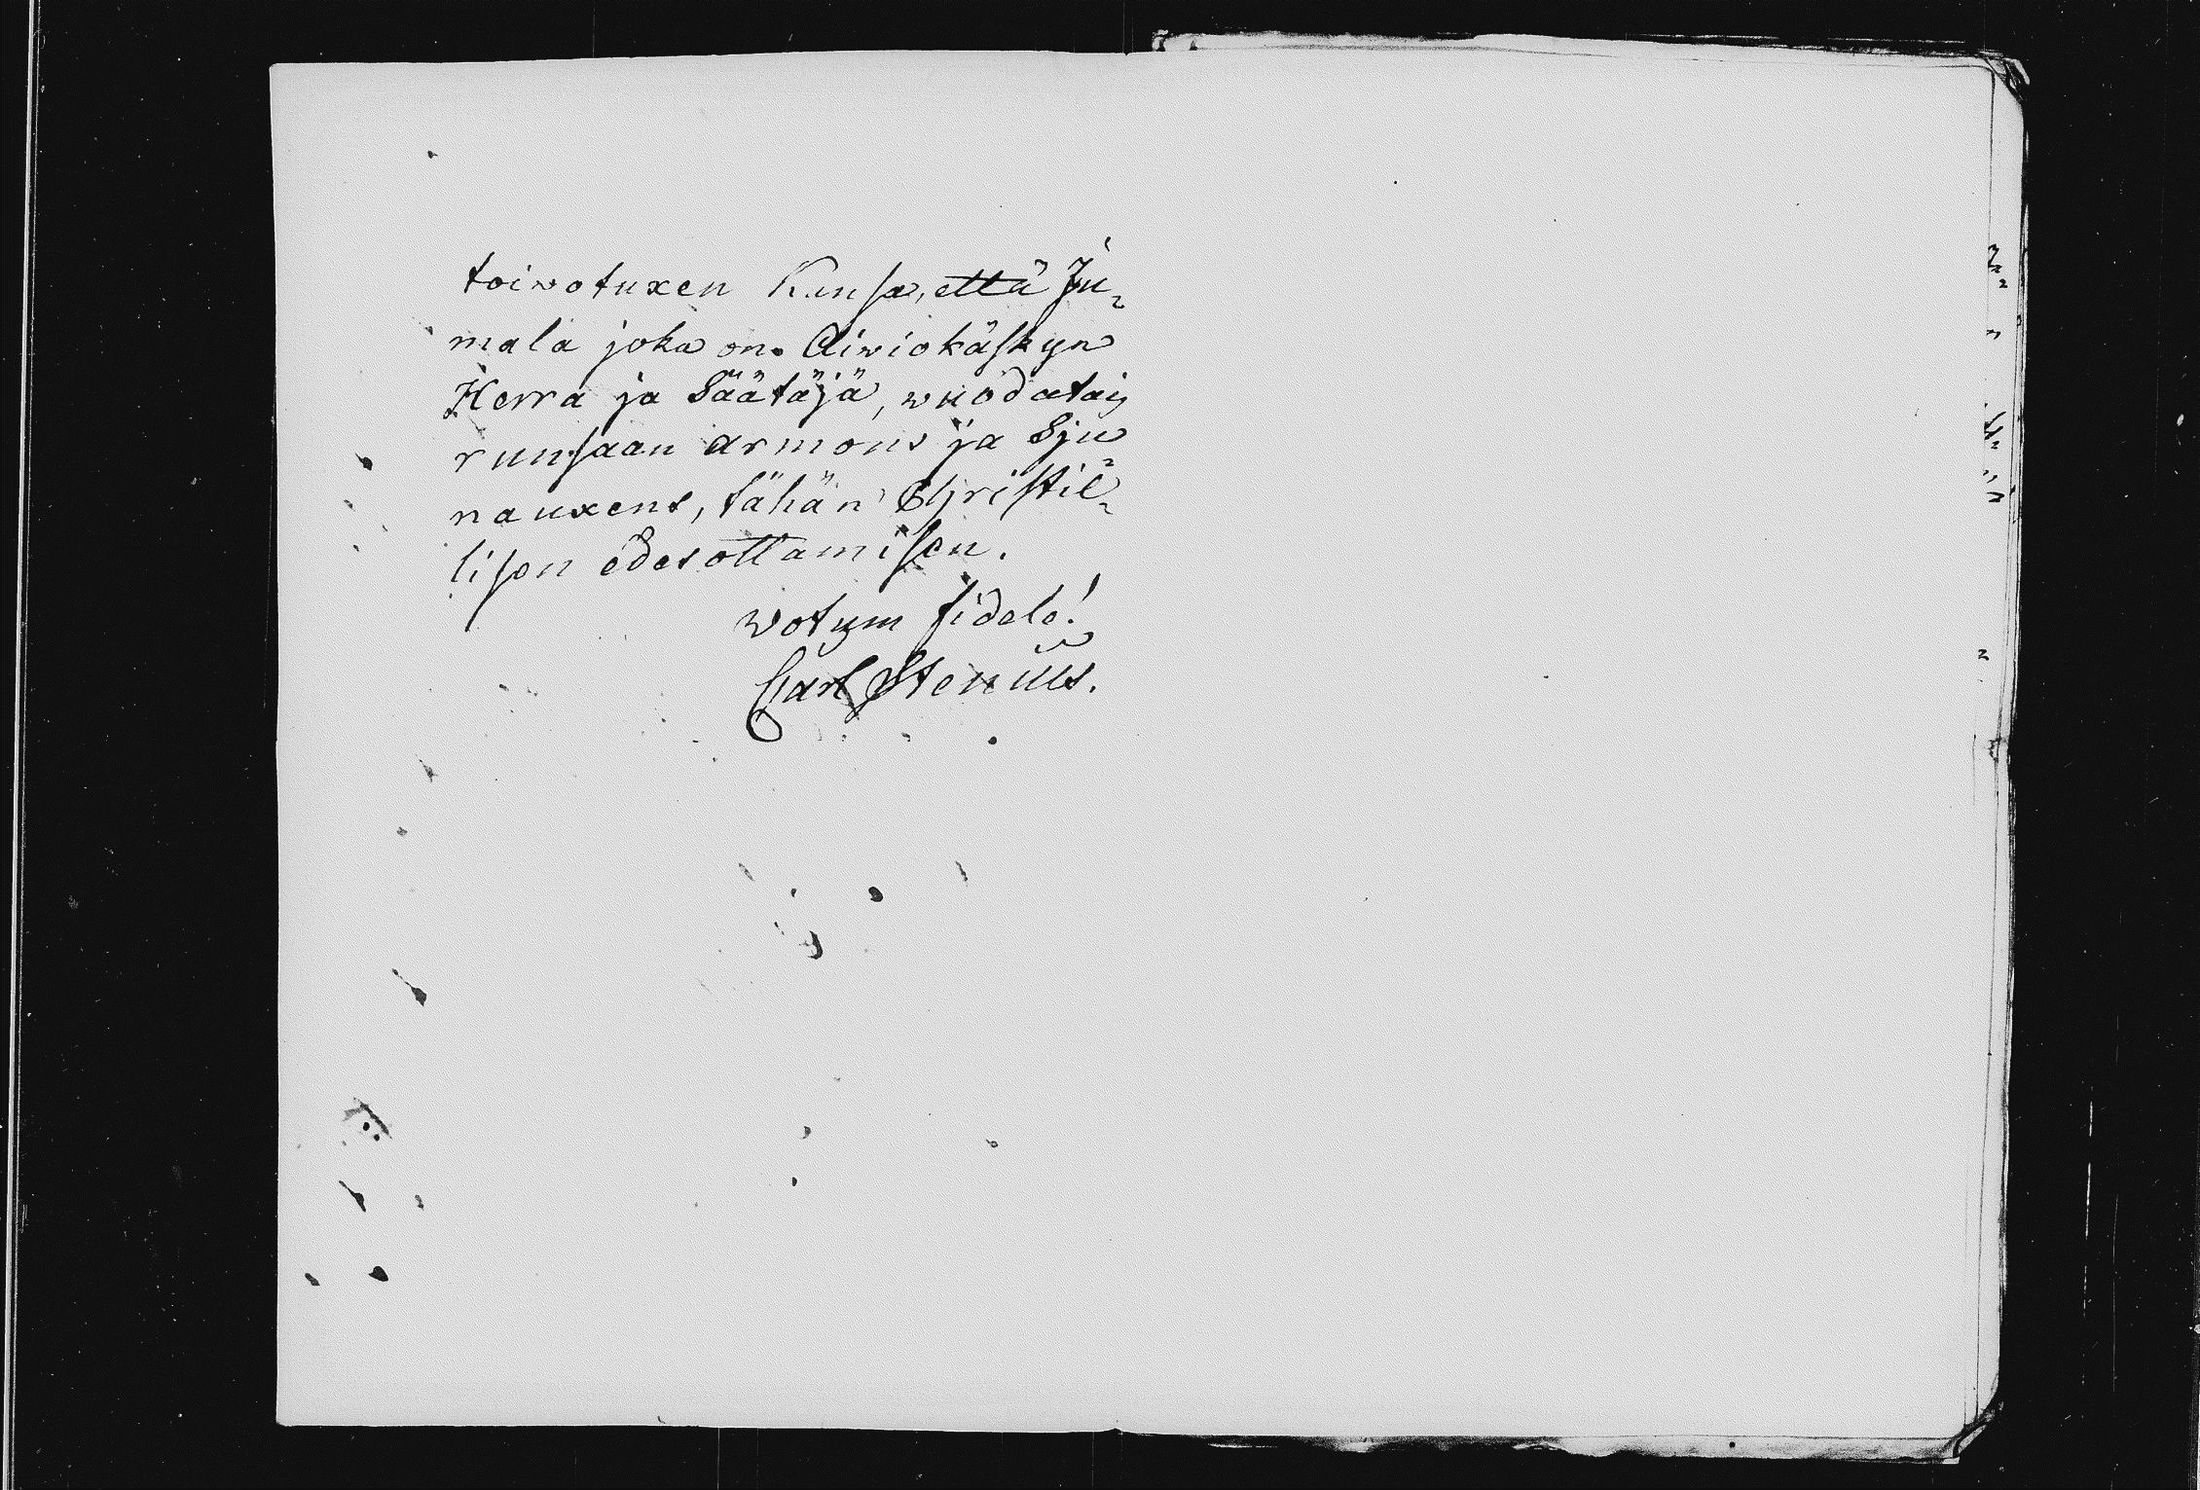 toiwotuxen Kansa, että Ju=
mala joka on Aiwiokäskyn
Herra ja Säätäjä, wuodatais
runsaan armons ja Sju
nauxens, tähän Christil=
lisen edesottamisen.
wotum fidele!
Carl Stenius.